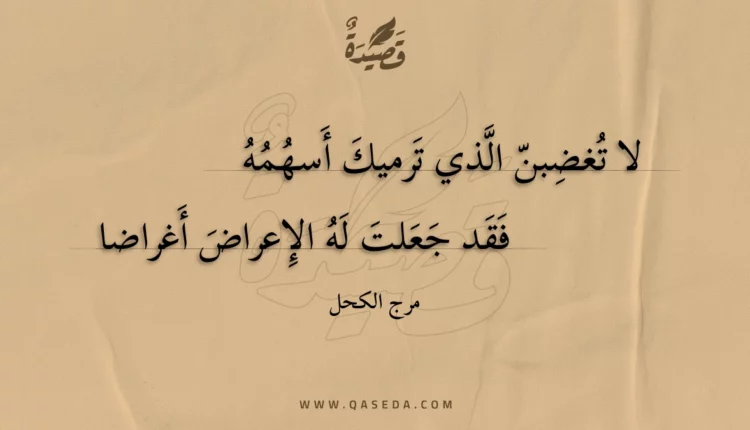 قَصِيْدَةٌ
لا تُغضِبنّ الَّذي تَرميكَ أَسهُمُهُ
فَقَد جَعَلتَ لَهُ الإِعراضَ أَغراضا
مرج الكحل
WWW.QASEDA.COM